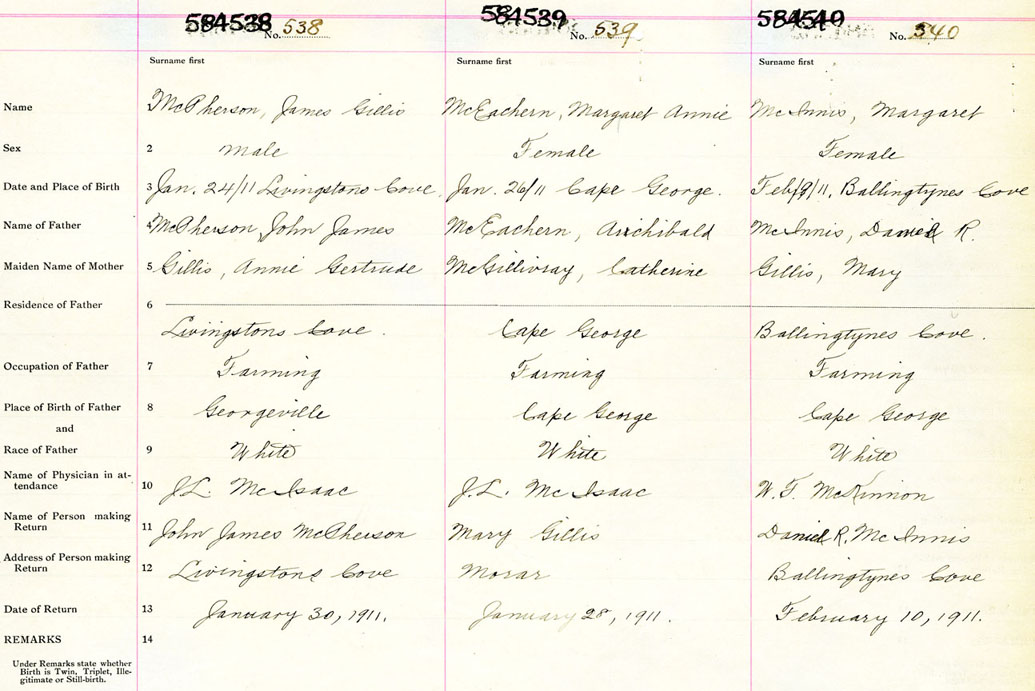 584538 584539 584540
No. 538 No. 539 No. 540
Surname first Surname first Surname first
Name McPherson, James Gillis McEachern, Margaret Annie McInnis, Margaret
Sex 2 Male Female Female
Date and Place of Birth 3 Jan. 24/11 Livingstons Cove. Jan. 26/11 Cape George. Feb/9/11, Ballingtynes Cove
Name of Father 4 McPherson, John James McEachern, Archibald McInnis, Daniel R.
Maiden Name of Mother 5 Gillis, Annie Gertrude McGillivray, Catherine Gillis, Mary
Residence of Father 6
Livingstons Cove. Cape George Ballingtynes Cove.
Occupation of Father 7 Farming Farming Farming
Place of Birth of Father 8 Georgeville Cape George Cape George
and
Race of Father 9 White White White
Name of Physician in at-
tendance 10 J.L. McIsaac J.L. McIsaac W.F. McKinnon
Name of Person making
Return 11 John James McPherson Mary Gillis Daniel R. McInnis
Address of Person making
Return 12 Livingstons Cove Morar Ballingtynes Cove
Date of Return 13 January 30, 1911. January 28, 1911. February 10, 1911.
REMARKS 14
Under Remarks state whether
Birth is Twin, Triplet, Ille-
gitimate or Still-birth.